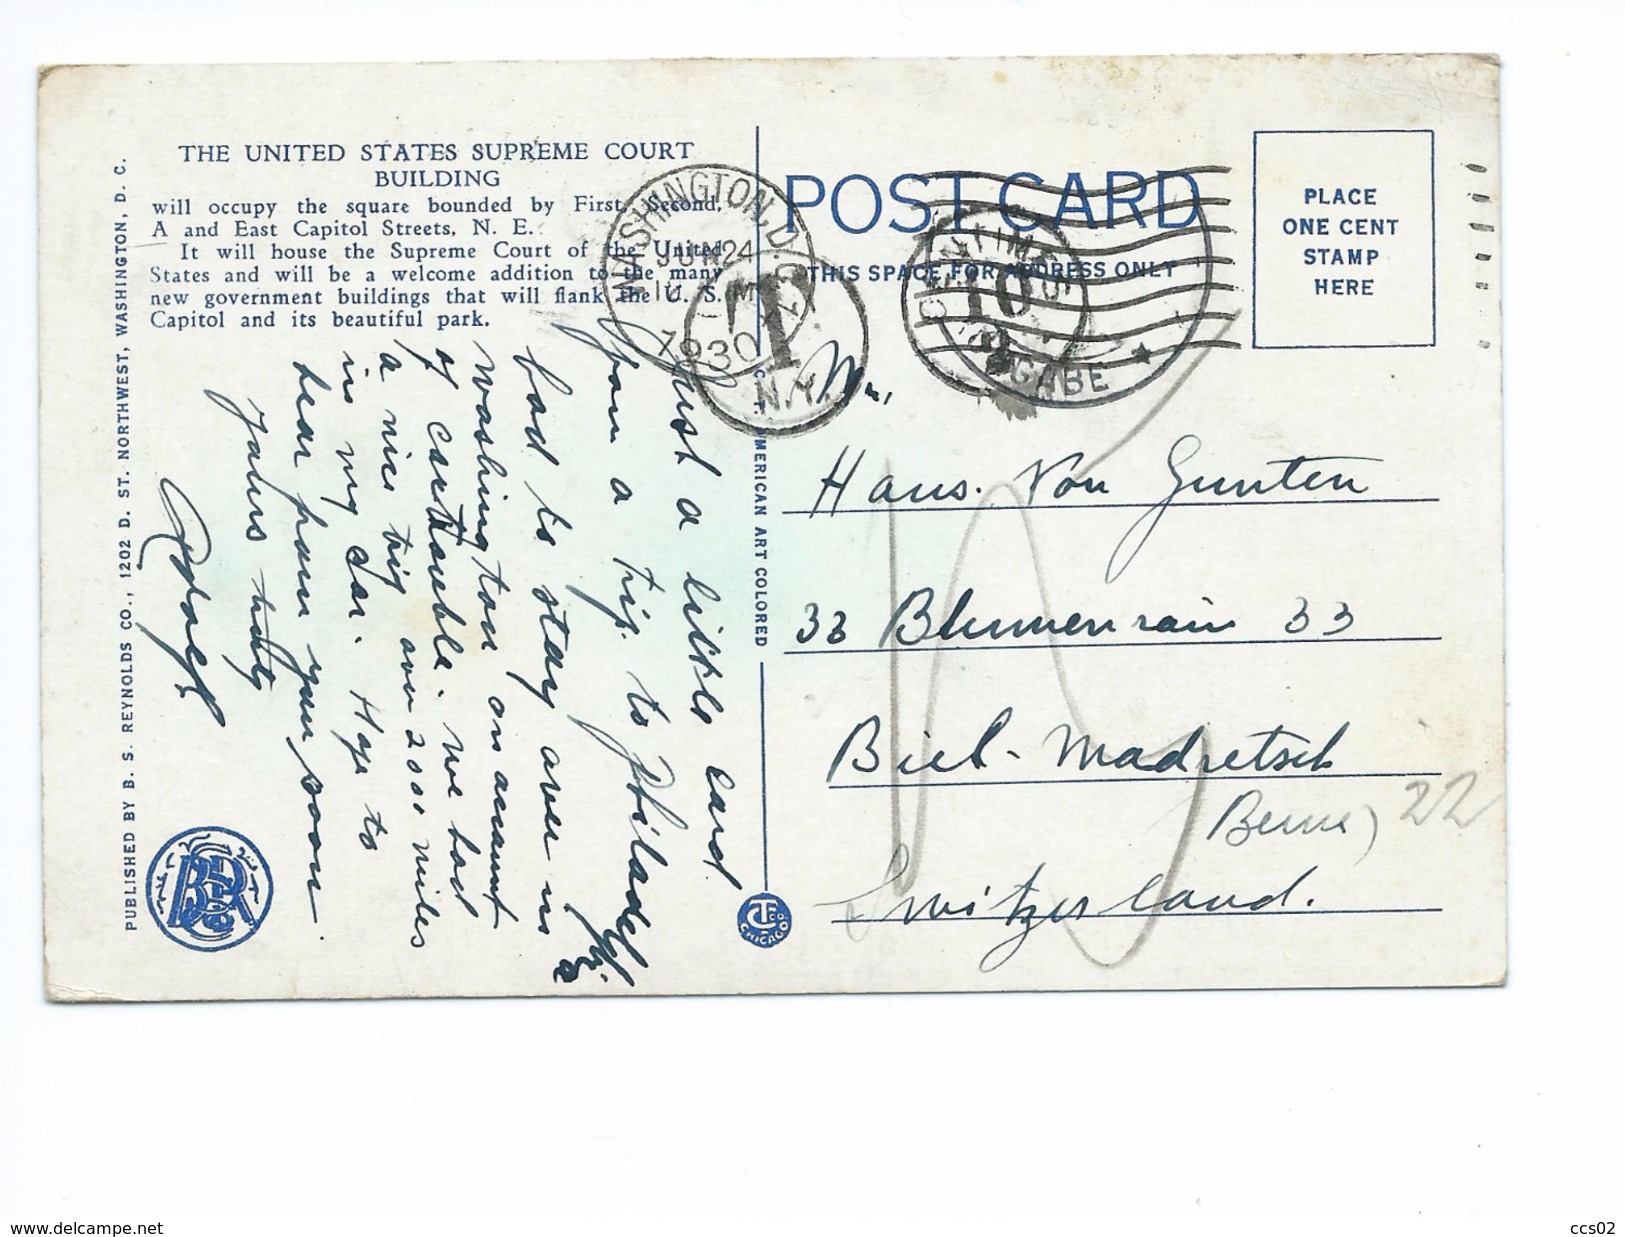 THE UNITED STATES SUPREME COURT
BUILDING
will occupy the square bounded by First, Second,
A and East Capitol Streets, N. E.
It will house the Supreme Court of the United
States and will be a welcome addition to the many
new government buildings that will flank the U. S.
Capitol and its beautiful park.
PUBLISHED BY B. S. REYNOLDS CO., 1202 D. ST. NORTHWEST, WASHINGTON, D. C.
Just a little card
from a trip to Philadelphia
had to stay over in
Washington on account
of car trouble. We had
a nice trip over 2000 miles
in my car. Hope to
hear from you soon.
Yours truly
WASHINGTON, D.C.
JUN 24
1930
T
N.Y.
C. T. AMERICAN ART COLORED
C.T. CO. CHICAGO
POST CARD
THIS SPACE FOR ADDRESS ONLY
CENTIMES
10
PLACE
ONE CENT
STAMP
HERE
Mr.
Hans. Von Gunten
33 Blumenrain 33
Biel-Madretsch
Berne) 22
Switzerland.
delcampe.net
ccs02